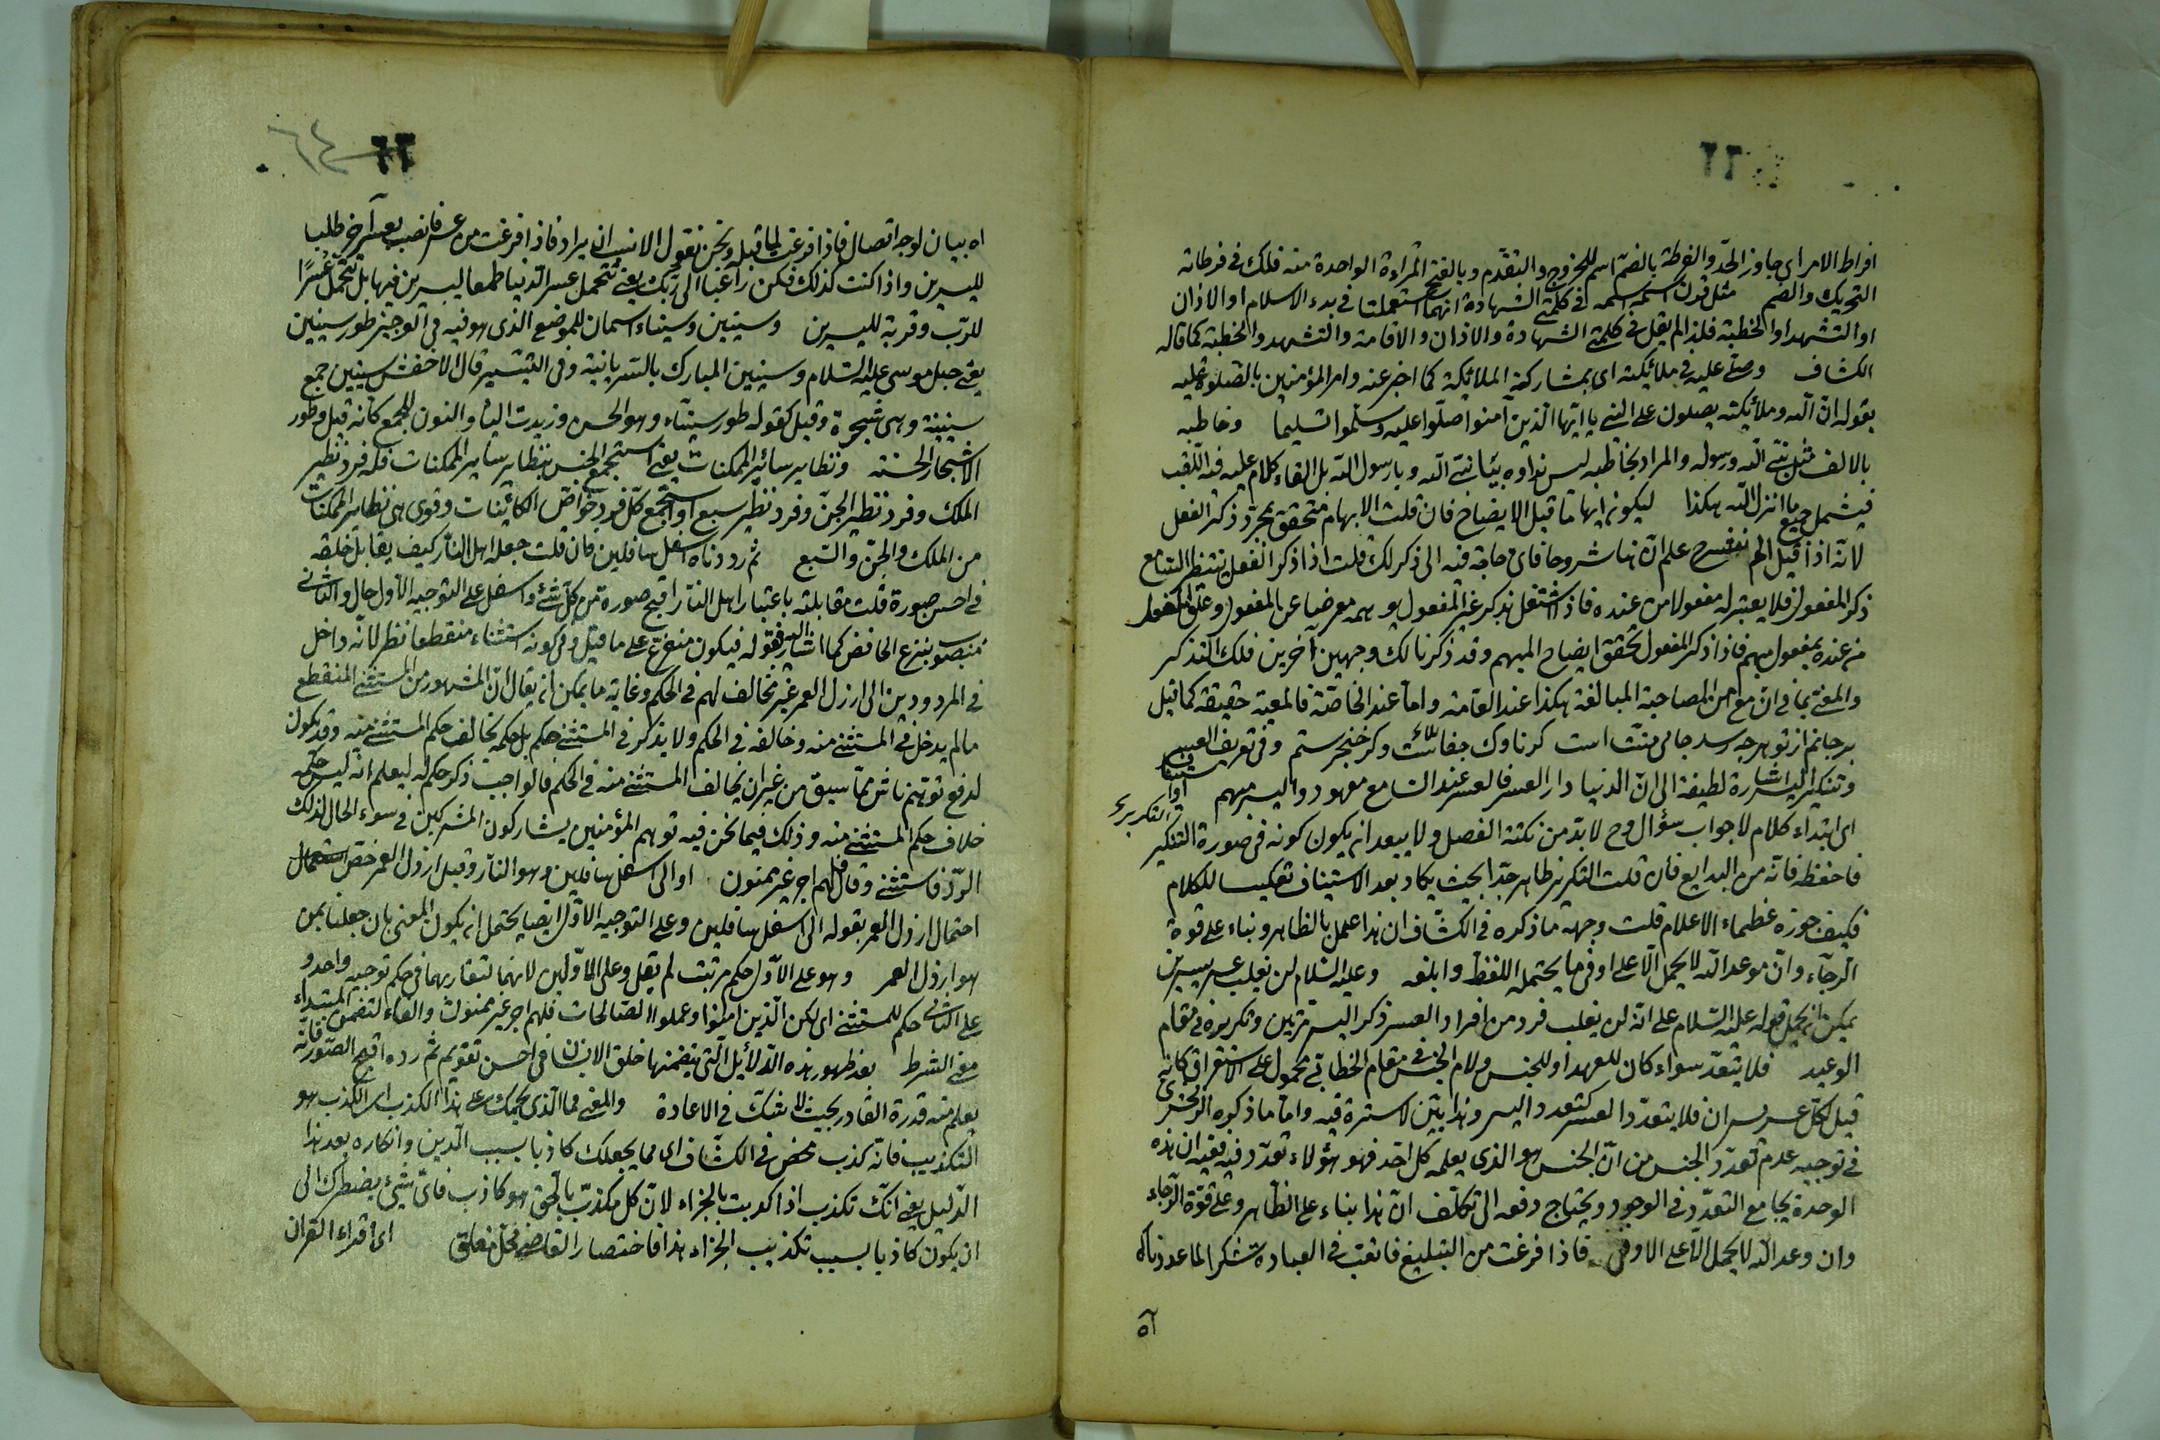 ٦٢
افراط الامر اى جاوز الحدّ والفرطة بالضمّ اسم للخروج والتقدم وبالفتح المرءة الواحدة منه فلك فى فرطاته
التحريك والضم مثل قرن اسمه باسمه فى كلمتى الشهادة انهما استعملتا فى بدء الاسلام او الاذان
او التشهد او الخطبة فلذا لم يقل فى كلمتى الشهادة والاذان والاقامة والتشهد والخطبة كما قاله
الكشاف وصلّى عليه فى ملائكته اى بمشاركة الملائكة كما اخبر عنه وامر المؤمنين بالصّلوة عليه
بقوله انّ الله وملائكته يصلون على النبى يا ايّها الذين آمنوا صلّوا عليه وسلّموا تسليما وخاطبه
بالالقاب مثل نبىّ الله ورسوله والمراد بخاطبه ليس نداوه بيا نبىّ الله ويا رسول الله بل القاء كلام عليه فيه اللقب
فيشمل جميع ما انزل الله هكذا ليكون ابهاما قبل الايضاح فان قلت الابهام متحقق بمجرّد ذكر الفعل
لانّه اذا قيل الم نشرح علم انّ هنا مشروحا فاى حاجة فيه الى ذكر لك قلت اذا ذكر الفعل ينتظر السّامع
ذكر المفعول فلا يعتبر له مفعولا من عنده فاذا اشتغل بذكر غير المفعول يوهمه معرضا عن المفعول وعلق الفعل
من عنده بمفعول مبهم فاذا ذكر المفعول تحقق ايضاح المبهم وقد ذكرنا لك وجهين آخرين فلك التذكر
والمعنى بما فى ان مع من المصاحبة المبالغة هكذا عند العامّة واما عند الخاصّة فالمعية حقيقة كما قيل
بر جانم از تو هر چه رسد جاى منّت است كر ناوك جفاست وكر خنجر ستم وفى تعريف العسر
وتنكير اليسر اشارة لطيفة الى انّ الدنيا دار العسر فالعسر عند السّامع معهود واليسر مبهم او استيناف
اى ابتداء كلام لا جواب سؤال وح لا بدّ من نكتة الفصل ولا يبعد ان يكون كونه فى صورة التكرير
فاحفظ فانّه من البدايع فان قلت التكرير ظاهر جدّا بحيث يكاد يعد الاستيناف تعكيسا للكلام
فكيف جوزه عظماء الاعلام قلت وجهه ما ذكره فى الكشّاف ان هذا عمل بالظاهر وبناء على قوة
الرجآء وانّ موعد الله لا يحمل الّا على اوفى ما يحتمله اللفظ وابلغه وعليه السّلام لن يغلب عسر يسرين
يمكن ان يحمل قوله عليه السّلام على انّه لن يغلب فرد من افراد العسر ذكر اليسر مرتين وتكريره فى مقام
الوعيد فلا يتعدّد سواء كان للعهد او للجنس ولام الجنس فى مقام الخطابى محمول على الاستغراق كانه
قيل لكل عسر يسران فلا يتعدّد العسر كتعدد اليسر وهذا بيّن لا سترة فيه واما ما ذكره الزمخشرى
فى توجيه عدم تعدّد الجنس من انّ الجنس هو الذى يعلمه كل احد فهو هو لا تعدّد فيه ففيه ان هذه
الوحدة يجامع التعدّد فى الوجود ويحتاج دفعه الى تكلّف انّ هذا بناء على الظاهر وعلى قوّة الرّجاء
وان وعد الله لا يحمل الّا على الاوفى فاذا فرغت من التبليغ فاتعب فى العبادة شكرا لما عددناه
اه
٦٢ ٦٤
اه بيان لوجه اتصال فاذا فرغت لما قبله ونحن نقول الانسب ان يراد فاذا فرغت من عسر فانصب بعسر آخر طلبا
لليسرين واذا كنت كذلك فكن راغبا الى ربّك يعنى تتحمل عسر الدّنيا طمعا ليسرين فيها بل تتحمّل عسرا
للربّ وقربة لليسرين وسينين وسيناء اسمان للموضع الذى هو فيه فى الوجيز طور سينين
يعنى جبل موسى عليه السّلام وسينين المبارك بالسّريانية وفى التيسير قال الاخفش سينين جمع
سينينة وهى شجرة وقيل كقوله طور سيناء وهو الحسن وزيدت اليا والنون للجمع كانه قيل وطور
الاشجار الحسنة ونظاير سائر الممكنات يعنى استجمع الجنس بنظاير ساير الممكنات فله فرد نظير
الملك وفرد نظير الجنّ وفرد نظير سبع او استجمع كلّ فرد خواصّ الكائنات وقوى هى نظاير الممكنات
من الملك والجنّ والسّبع ثم رددناه اسفل سافلين فان قلت جعله اهل النار كيف يقابل خلقه
فى احسن صورة قلت مقابلته باعتبار اهل النار اقبح صورة من كلّ شىء واسفل على التوجيه الاول حال والثانى
منصوب بنزع الخافض كما اشار اليه بقوله فيكون متفرع على ما قيل وفى كونه استثناء منقطعا نظر لانّه داخل
فى المردودين الى ارزل العمر غير مخالف لهم فى الحكم وغاية ما يمكن ان يقال انّ المشهور من المستثنى المنقطع
ما لم يدخل فى المستثنى منه وخالفه فى الحكم ولا يذكر فى المستثنى حكم بل حكمه يخالف حكم المستثنى منه وقد يكون
لدفع توهّم ناش ممّا سبق من غير ان يخالف المستثنى منه فى الحكم فالواجب ذكر حكم له ليعلم انّه ليس حكمه
خلاف حكم المستثنى منه وذلك فيما نحن فيه توهم المؤمنين يشاركون المشركين فى سوء الحال لذلك
الردّ فاستثنى وقال فلهم اجر غير ممنون او الى اسفل سافلين وهو النّار وقيل ارزل العمر خصّ استعمال
احتمال ارزل العمر بقوله الى اسفل سافلين وعلى التوجيه الاوّل ايضا يحتمل ان يكون المعنى بان جعلنا بمن
هو ارزل العمر وهو على الاوّل حكم مرتب لم يقل وعلى الاوّلين لانهما لتقاربهما فى حكم توجيه واحد و
على الثانى حكم للمستثنى اى لكن الّذين امنوا وعملوا الصّالحات فلهم اجر غير ممنون والفاء لتضمن المبتداء
معنى الشرط بعد ظهور هذه الدّلايل الّتى يتضمنها خلق الانسان فى احسن تقويم ثم ردّه اقبح الصّور فانّه
يعلم منه قدرة القادر بحيث لا شكّ فى الاعادة والمعنى فما الّذى يحملك على هذا الكذب اى الكذب هو
التكذيب فانّه كذب محض فى الكشّاف اى مما يجعلك كاذبا بسبب الدّين وانكاره بعد هذا
الدّليل يعنى انّك تكذب اذا كذبت بالجزاء لانّ كل مكذّب بالحق هو كاذب فاى شىء يضطرّك الى
ان يكون كاذبا بسبب تكذيب الجزاء هذا فاختصار القاضى مخل مغلق اى اقراء القران